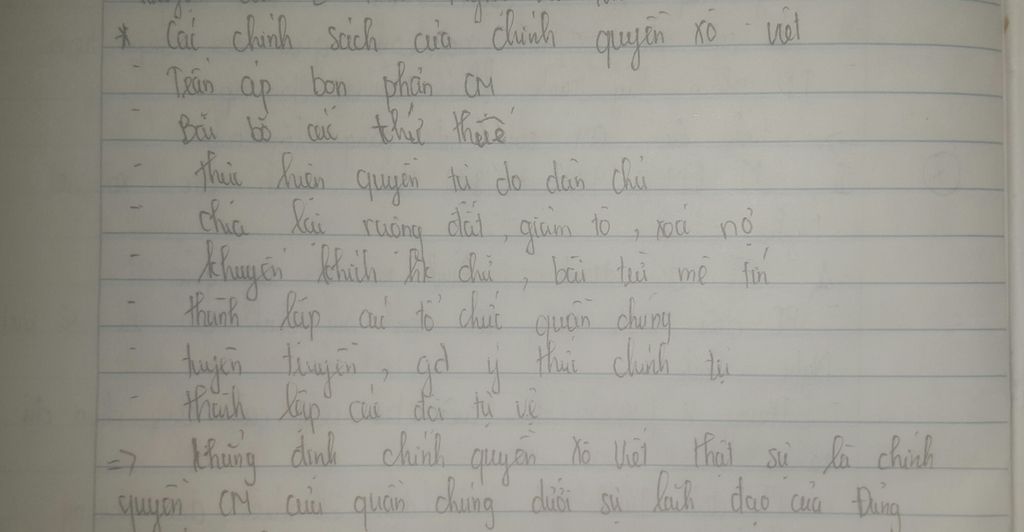 * Các chính sách của chính quyền xô - viết
- Trấn áp bọn phản CM
- Bãi bỏ các thứ thuế
- thực hiện quyền tự do dân chủ
- chia lại ruộng đất, giảm tô, xoá nợ
- khuyến khích hk chữ, bài trừ mê tín
- thành lập các tổ chức quần chúng
- tuyên truyền, gd ý thức chính trị
- thành lập các đội tự vệ
=> khẳng định chính quyền xô viết thật sự là chính
quyền CM của quần chúng dưới sự lãnh đạo của Đảng